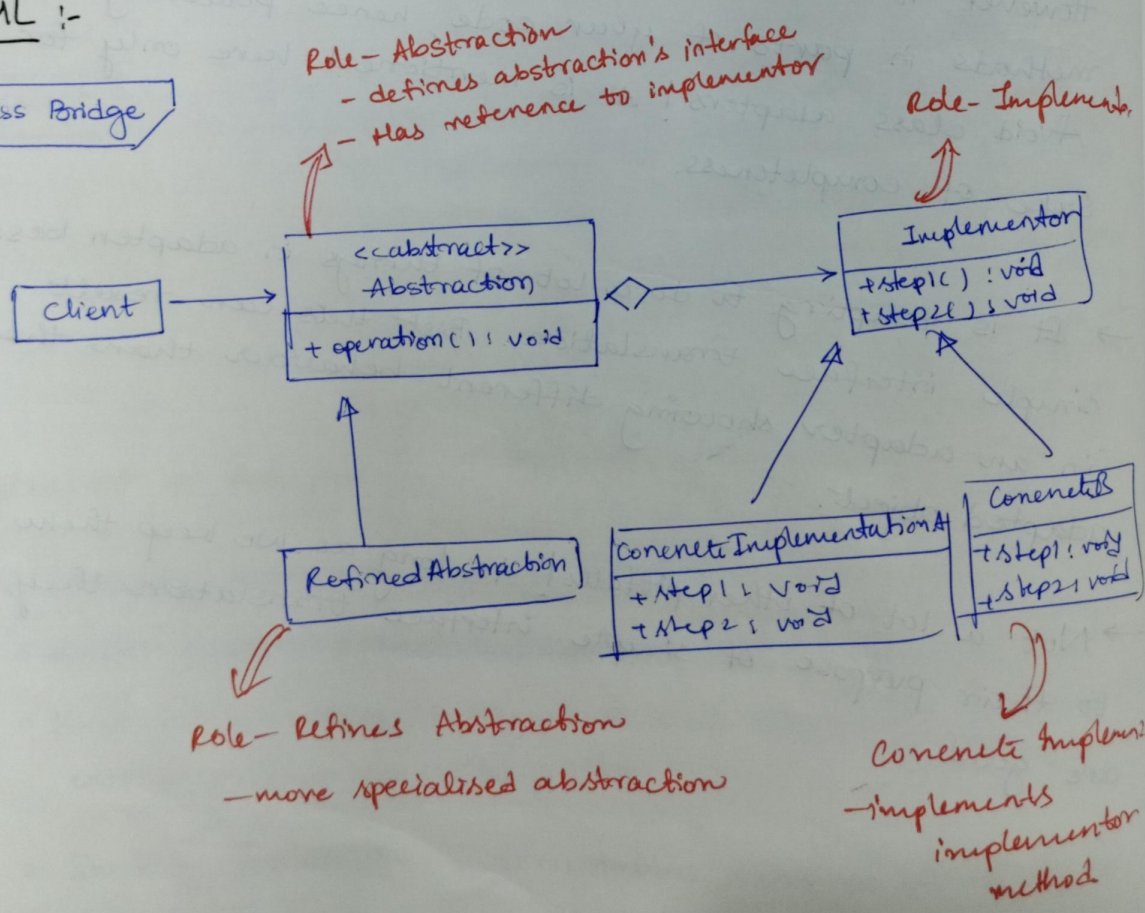 ML :-
ss Bridge
Role- Abstraction
- defines abstraction's interface
- Has reference to implementor
Role- Implemento
<<abstract>>
Abstraction
+ operation() : void
Client
Implementor
+step1() : void
+step2() : void
RefinedAbstraction
ConcreteImplementationA
+step1 : void
+step2 : void
ConcreteB
+step1 : void
+step2 : void
Role- Refines Abstraction
- more specialised abstraction
Concrete Implemen
-implements
implementor
method